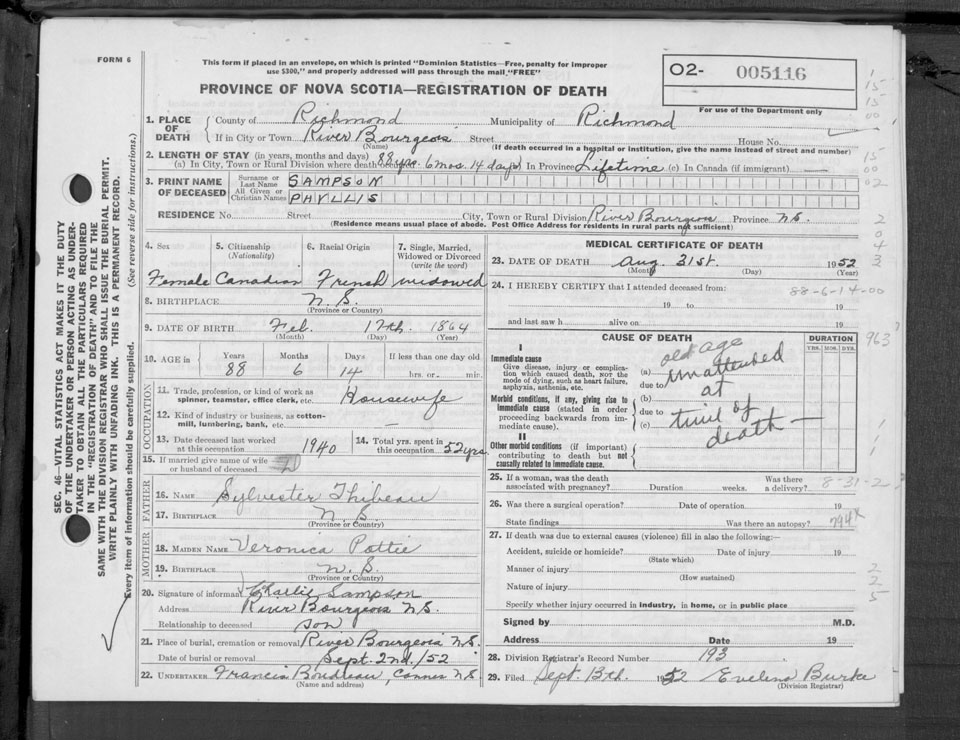 FORM 6
This form if placed in an envelope, on which is printed "Dominion Statistics—Free, penalty for improper
use $300," and properly addressed will pass through the mail, "FREE"
O2- 005116
For use of the Department only
PROVINCE OF NOVA SCOTIA—REGISTRATION OF DEATH
SEC. 46—VITAL STATISTICS ACT MAKES IT THE DUTY
OF THE UNDERTAKER OR PERSON ACTING AS UNDER-
TAKER TO OBTAIN ALL THE PARTICULARS REQUIRED
IN THE "REGISTRATION OF DEATH" AND TO FILE THE
SAME WITH THE DIVISION REGISTRAR WHO SHALL ISSUE THE BURIAL PERMIT.
WRITE PLAINLY WITH UNFADING INK. THIS IS A PERMANENT RECORD.
Every item of information should be carefully supplied. (See reverse side for instructions.)
1. PLACE OF DEATH
County of Richmond Municipality of Richmond
If in City or Town River Bourgeois Street House No.
(Name) (If death occurred in a hospital or institution, give the name instead of street and number)
2. LENGTH OF STAY (in years, months and days)
(a) In City, Town or Rural Division where death occurred 88 yrs. 6 mos. 14 days) In Province Lifetime (c) In Canada (if immigrant)
3. PRINT NAME OF DECEASED
Surname or Last Name SAMPSON
All Given or Christian Names PHYLLIS
RESIDENCE No. Street City, Town or Rural Division River Bourgeois Province N.S.
(Residence means usual place of abode. Post Office Address for residents in rural parts not sufficient)
4. Sex 5. Citizenship (Nationality) 6. Racial Origin 7. Single, Married, Widowed or Divorced (write the word)
Female Canadian French widowed
8. BIRTHPLACE N.S.
(Province or Country)
9. DATE OF BIRTH Feb. 17th. 1864
(Month) (Day) (Year)
10. AGE in Years Months Days If less than one day old
88 6 14 hrs. or min.
OCCUPATION
11. Trade, profession, or kind of work as spinner, teamster, office clerk, etc. Housewife
12. Kind of industry or business, as cotton-mill, lumbering, bank, etc. —
13. Date deceased last worked at this occupation 1940 14. Total yrs. spent in this occupation 52 yrs.
15. If married give name of wife or husband of deceased
FATHER
16. NAME Sylvester Thibeau
17. BIRTHPLACE N.S.
(Province or Country)
MOTHER
18. MAIDEN NAME Veronica Pottie
19. BIRTHPLACE N.S.
(Province or Country)
20. Signature of informant Charlie Sampson
Address River Bourgeois N.S.
Relationship to deceased son
21. Place of burial, cremation or removal River Bourgeois N.S.
Date of burial or removal Sept. 2nd./52
22. UNDERTAKER Francis Boudreau, N.S.
(Name and address)
MEDICAL CERTIFICATE OF DEATH
23. DATE OF DEATH Aug. 31st. 1952
(Month) (Day) (Year)
24. I HEREBY CERTIFY that I attended deceased from:
88-6-14-00
19 to 19
and last saw h alive on 19
CAUSE OF DEATH DURATION
YRS. MOS. DYS.
963
I
Immediate cause
Give disease, injury or complication which caused death, not the mode of dying, such as heart failure, asphyxia, asthenia, etc.
(a) old age
due to unattended
Morbid conditions, if any, giving rise to immediate cause (stated in order proceeding backwards from immediate cause).
(b) at
due to
(c) time of
death —
II
Other morbid conditions (if important) contributing to death but not causally related to immediate cause.
25. If a woman, was the death associated with pregnancy? Duration weeks. Was there a delivery?
8-31-2
26. Was there a surgical operation? Date of operation 19
State findings Was there an autopsy?
794X
27. If death was due to external causes (violence) fill in also the following:—
Accident, suicide or homicide? Date of injury 19
(State which)
Manner of injury
(How sustained)
Nature of injury
Specify whether injury occurred in industry, in home, or in public place
Signed by M.D.
Address Date 19
28. Division Registrar's Record Number 193
29. Filed Sept. 13th. 1952 Evelena Burke
(Division Registrar)